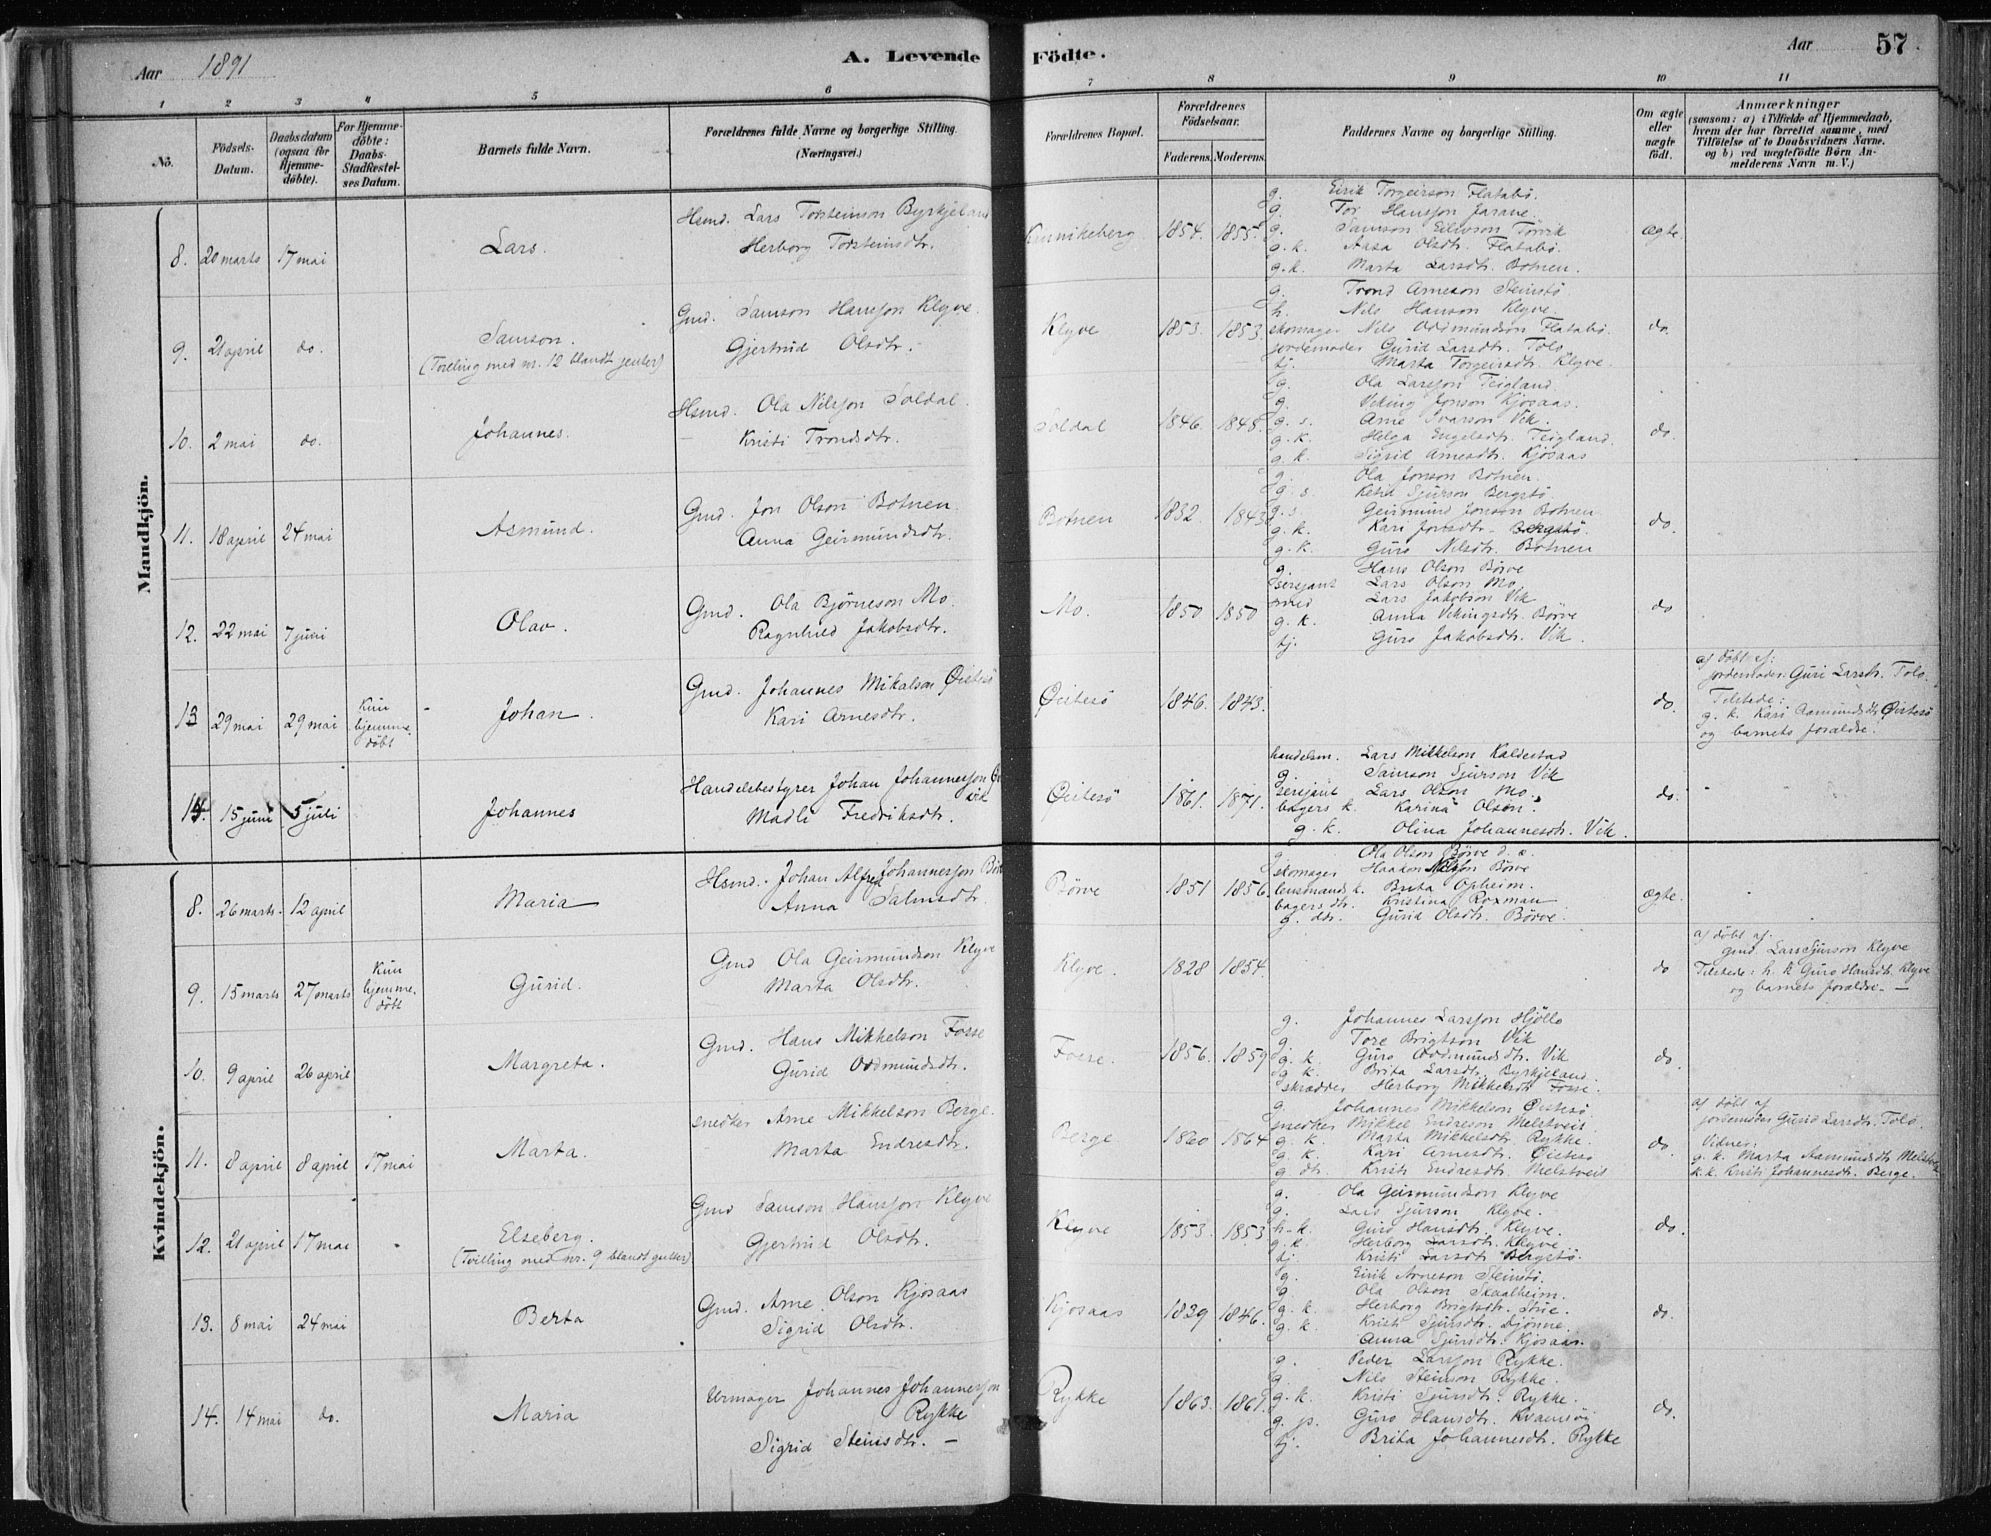 Aar 1891
A. Levende Födte.
Aar 57
1 2 3 4 5 6 7 8 9 10 11
No.
Födsels-Datum.
Daabsdatum (ogsaa for Hjemme-döbte).
For Hjemme-döbte: Daabs-Stadfæstel-ses Datum.
Barnets fulde Navn.
Forældrenes fulde Navne og borgerlige Stilling. (Næringsvei.)
Forældrenes Bopæl.
Forældrenes Födselsaar.
Faderens. Moderens.
Faddernes Navne og borgerlige Stilling.
Om ægte eller uægte födt.
Anmærkninger (saasom: a) i Tilfælde af Hjemmedaab, hvem der har forrettet samme, med Tilföielse af to Daabsvidners Navne. og b) ved uægtefödte Börn An-melderens Navn m. V.)
Mandkjön.
8. 20 marts 17 mai
Lars.
Hsmd. Lars Torsteinson Byrkjeland
Herborg Torsteinsdtr.
1854. 1855.
g. Eirik Torgeirson Flatabö.
g. Tor Hansson Jarane.
g. Samson Eilivson Törvik
g. k. Aasa Olsdtr. Flatabö.
g. k. Marta Larsdtr. Botnen.
ægte.
9. 21 april do.
Samson.
(Tvilling med nr. 12 blandt jenter)
Gmd. Samson Hansson Klyve.
Gjertrud Olsdtr.
Klyve 1853. 1853.
g. Trond Arneson Steinstö
h. Nils Hanson Klyve.
skomager Nils Oddmundson Flatabö.
jordemoder Gurid Larsdtr. Tolo.
tj. Marta Torgeirsdtr. Klyve.
do.
10. 2 mai do.
Johannes.
Hsmd. Ola Nilsson Soldal.
Kristi Trondsdtr.
Soldal 1846. 1848.
g. Ola Larsson Teigland.
g. Viking Jonson Kjosaas.
g. s. Arne Ivarson Vik.
g. k. Helga Engelsdtr. Teigland.
g. k. Sigrid Arnesdtr. Kjosaas
do.
11. 18 april 24 mai
Asmund.
Gmd. Jon Olson Botnen.
Anna Geirmundsdtr.
Botnen 1832. 1843
g. Ola Jonson Botnen.
g. s. Ketil Sjurson Bergstö
g. s. Geirmund Jonson Botnen
g. k. Kari Jonsdtr. Bergstö
g. k. Guro Nilsdtr. Botnen
do.
12. 22 mai 7 juni
Olav.
Gmd. Ola Björneson Mo.
Ragnhild Jakobsdtr.
Mo. 1850 1850
g. Hans Olson Börve
sersjant Lars Olson Mo
smed Lars Jakobson Vik
g. k. Anna Vikingsdtr. Börve
tj. Guro Jakobsdtr. Vik.
do
13 29 mai 29 mai Kun hjemme-döbt
Johan.
Gmd. Johannes Mikalson Öistesö
Kari Arnesdtr.
Öistesö 1846. 1843.
do.
af döbt af:
jordemoder Guri Larsdtr. Tolo.
Tilstede:
g. k. Kari Aamundsdtr. Öistesö
og barnets forældre.
14. 15 juni 5 juli
Johannes
Handelsbestyrer Johan Johannesson
Madli Fredriksdtr.
Öistesö 1861. 1871.
handelsm. Lars Mikkelson Kaldestad
g. Samson Sjurson Vik
sersjant Lars Olson Mo.
bagers k. Karina Olsen.
g. k. Olina Johannesdtr. Vik.
do.
Kvindekjön.
8. 26 marts. 12 april
Maria
Hsmd. Johan Alfred Johannesson
Anna
Börve 1851 1856.
g. Ola Olson Börve
skomager Haakon Nilsson Börve
lensmands k. Brita Opheim.
bagers dtr. Kristina Roxman
g. dtr. Gurid Olsdtr. Börve.
ægte.
9. 15 marts 27 marts Kun hjemme-döbt
Gurid.
Gmd Ola Geirmundson Klyve
Marta Olsdtr.
Klyve. 1828 1854.
do
af döbt af:
gmd. Lars Sjurson Klyve
Tilstede: h. k. Guro Hansdtr. Klyve
og barnets forældre. —
10. 9 april 26 april
Margreta.
Gmd. Hans Mikkelson Fosse
Gurid Oddmundsdtr.
Fosse. 1856. 1859
g. Johannes Larsson Hjöllo
g. Tore Brigtson Vik
g. k. Guro Oddmundsdtr. Vik
g. k. Brita Larsdtr. Byrkjeland.
skrædder Herborg Mikkelsdtr. Fosse.
do.
11. 8 april 8 april 17 mai
Marta.
snedker Arne Mikkelson Berge.
Marta Endresdtr.
Berge 1860 1864
g. Johannes Mikkelson Öistesö
snedker Mikkel Endreson Melstveit
g. k. Marta Mikkelsdtr. Rykke.
g. k. Kari Arnesdtr. Öistesö
g. dtr. Kristi Endresdtr. Melstveit
do.
af döbt af
jordemoder Gurid Larsdtr. Tolo.
Vidner:
g. k. Marta Aamundsdtr. Melstveit
k. k. Kristi Johannesdtr. Berge.
12. 21 april 17 mai
Elseberg.
(Tvilling med nr. 9 blandt gutter)
Gmd Samson Hansson Klyve
Gjertrud Olsdtr.
Klyve 1853. 1853
g. Ola Geirmundson Klyve
g. Lars Sjurson Klyve.
h. k. Guro Hansdtr. Klyve.
g. k. Herborg Larsdtr. Klyve
tj. Kristi Larsdtr. Bergstö.
do.
13. 8 mai 24 mai
Berta
Gmd. Arne Olson Kjosaas
Sigrid Olsdtr.
Kjosaas 1839 1846.
g. Eirik Arneson Steinstö.
g. Ola Olson Skaalheim.
g. k. Herborg Brigtsdtr. Stue.
g. k. Kristi Sjursdtr. Djönne.
Anna Sjursdtr. Kjosaas.
do.
14. 14 mai do.
Maria
Urmager Johannes Johannesson
Rykke
Sigrid Steinsdtr. —
Rykke 1863. 1861.
g. Peder Larsson Rykke.
g. Nils Steinson Rykke.
g. k. Kristi Sjursdtr. Rykke.
g. p. Guro Hansdtr. Kvamsöi
tj. Brita Johannesdtr. Rykke
do.